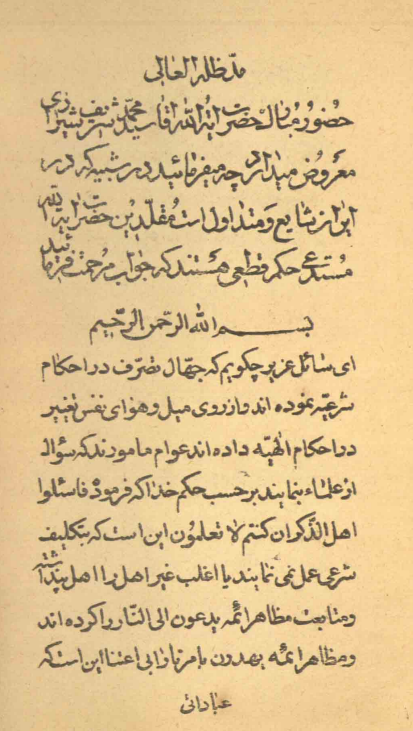 مدّ ظله العالی
حضور مبارک حضرت آیة الله آقا سید محمد شریف شیرازی
معروض میدارد چه میفرمائید در شبیه که در
ایران شایع و متداول است مقلّدین حضرت آیة الله
مستدعی حکم قطعی هستند که جواب مرحمت فرمائید
بسم الله الرّحمن الرّحیم
ای سائل عزیز چگویم که جهّال تصرّف در احکام
شرعیّه نموده اند و از روی میل و هوای نفس تغییر
در احکام الهیّه داده اند عوام مامورند که سؤال
از علماء بنمایند بر حسب حکم خدا که فرموده فاسئلوا
اهل الذّکر ان کنتم لا تعلمون این است که بتکلیف
شرعی عمل نمی نمایند یا اغلب غیر اهل را اهل پنداشته
و متابعت مظاهر ائمّه یدعون الی النّار را کرده اند
و مظاهر ائمّه یهدون بامرنا را بی اعتنا این است که
عباداتی